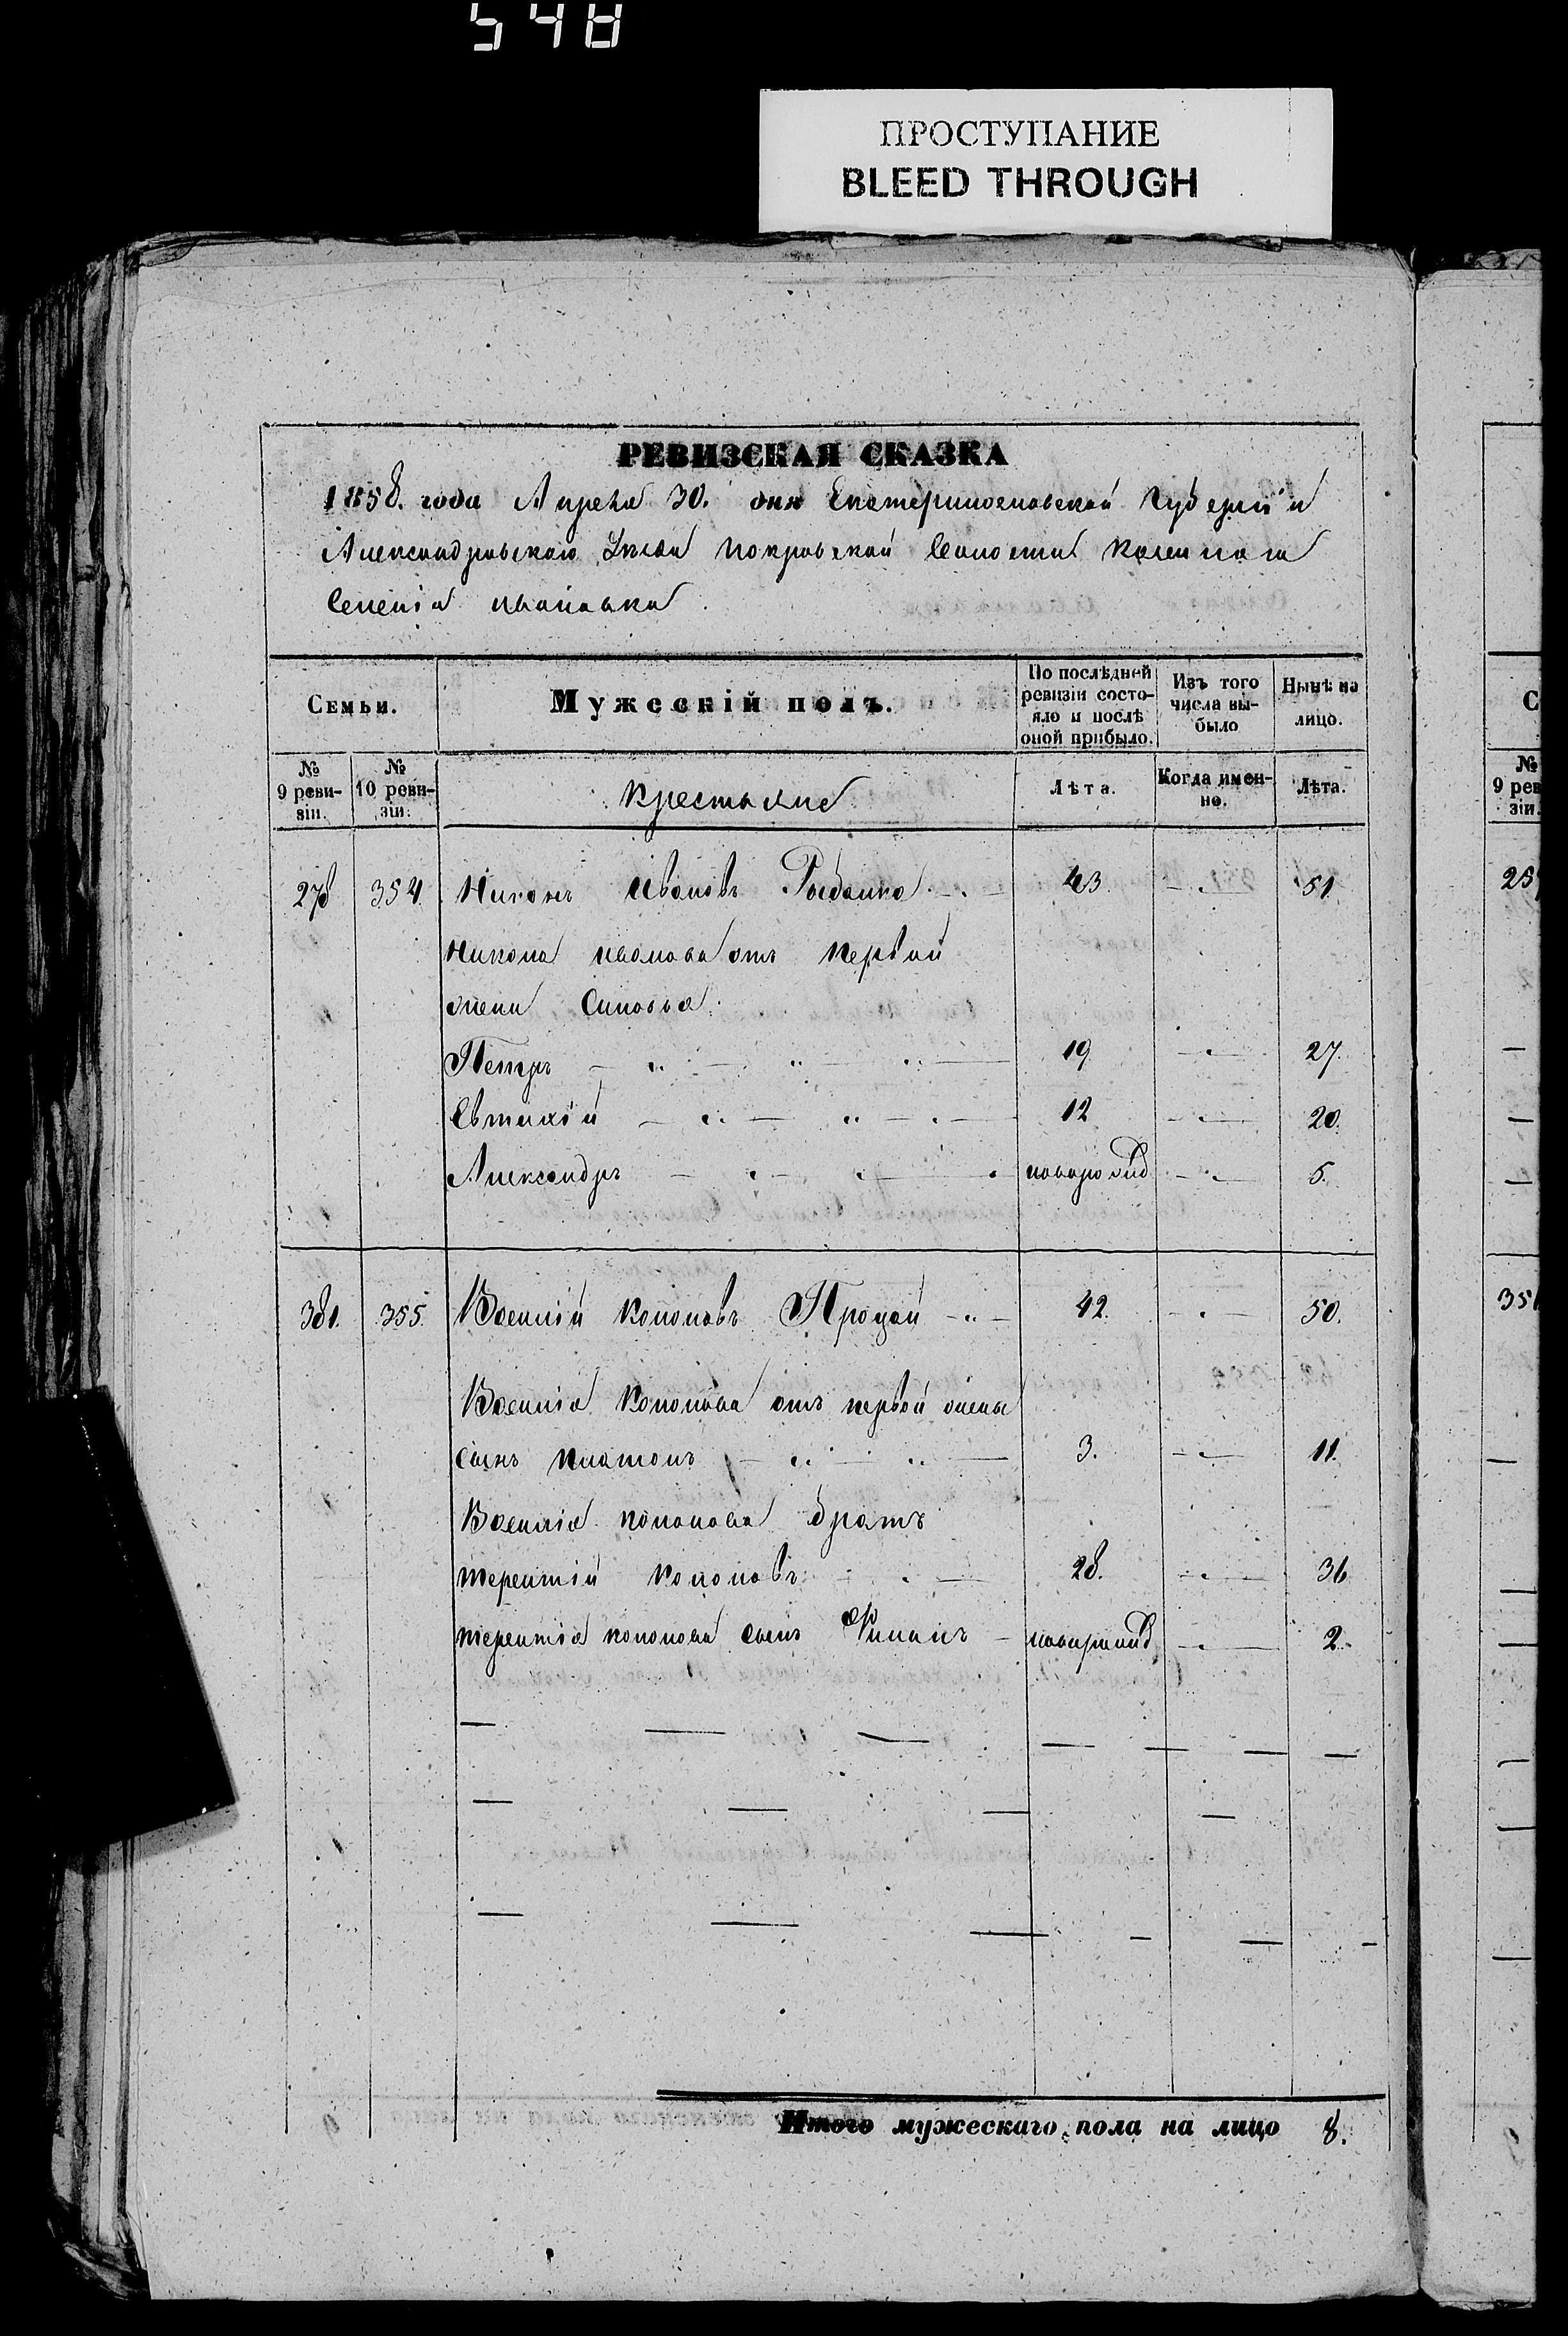 548
ПРОСТУПАНИЕ
BLEED THROUGH
РЕВИЗСКАЯ СКАЗКА
1858. года Апреля 30. дня Екатеринославской Губернiи
Александровского Уезда Покровской Волости Казеннаго
Селенiя Ивановка
Семьи. Мужескiй полъ. По послѣдней ревизiи состояло и послѣ оной прибыло. Изъ того числа выбыло Нынѣ на лицо.
№ 9 ревизiи. № 10 ревизiи. Крестьяне Лѣта. Когда именно. Лѣта.
278 354. Никонъ Ивановъ Рыбалка 43. 51
Никона Иванова отъ первой
жены Сыновья:
Петръ 19 27.
Евтихiй 12 20.
Александръ новорожд 5.
381. 355. Василiй Кононовъ Процай 42. 50.
Василiя Кононова отъ первой жены
сынъ Платонъ 3. 11.
Василiя Кононова братъ
Терентiй Кононовъ 28. 36
Терентiя Кононова сынъ новорожд 2.
Итого мужескаго пола на лицо 8.
С
№
9 рев
зiи.
25
35